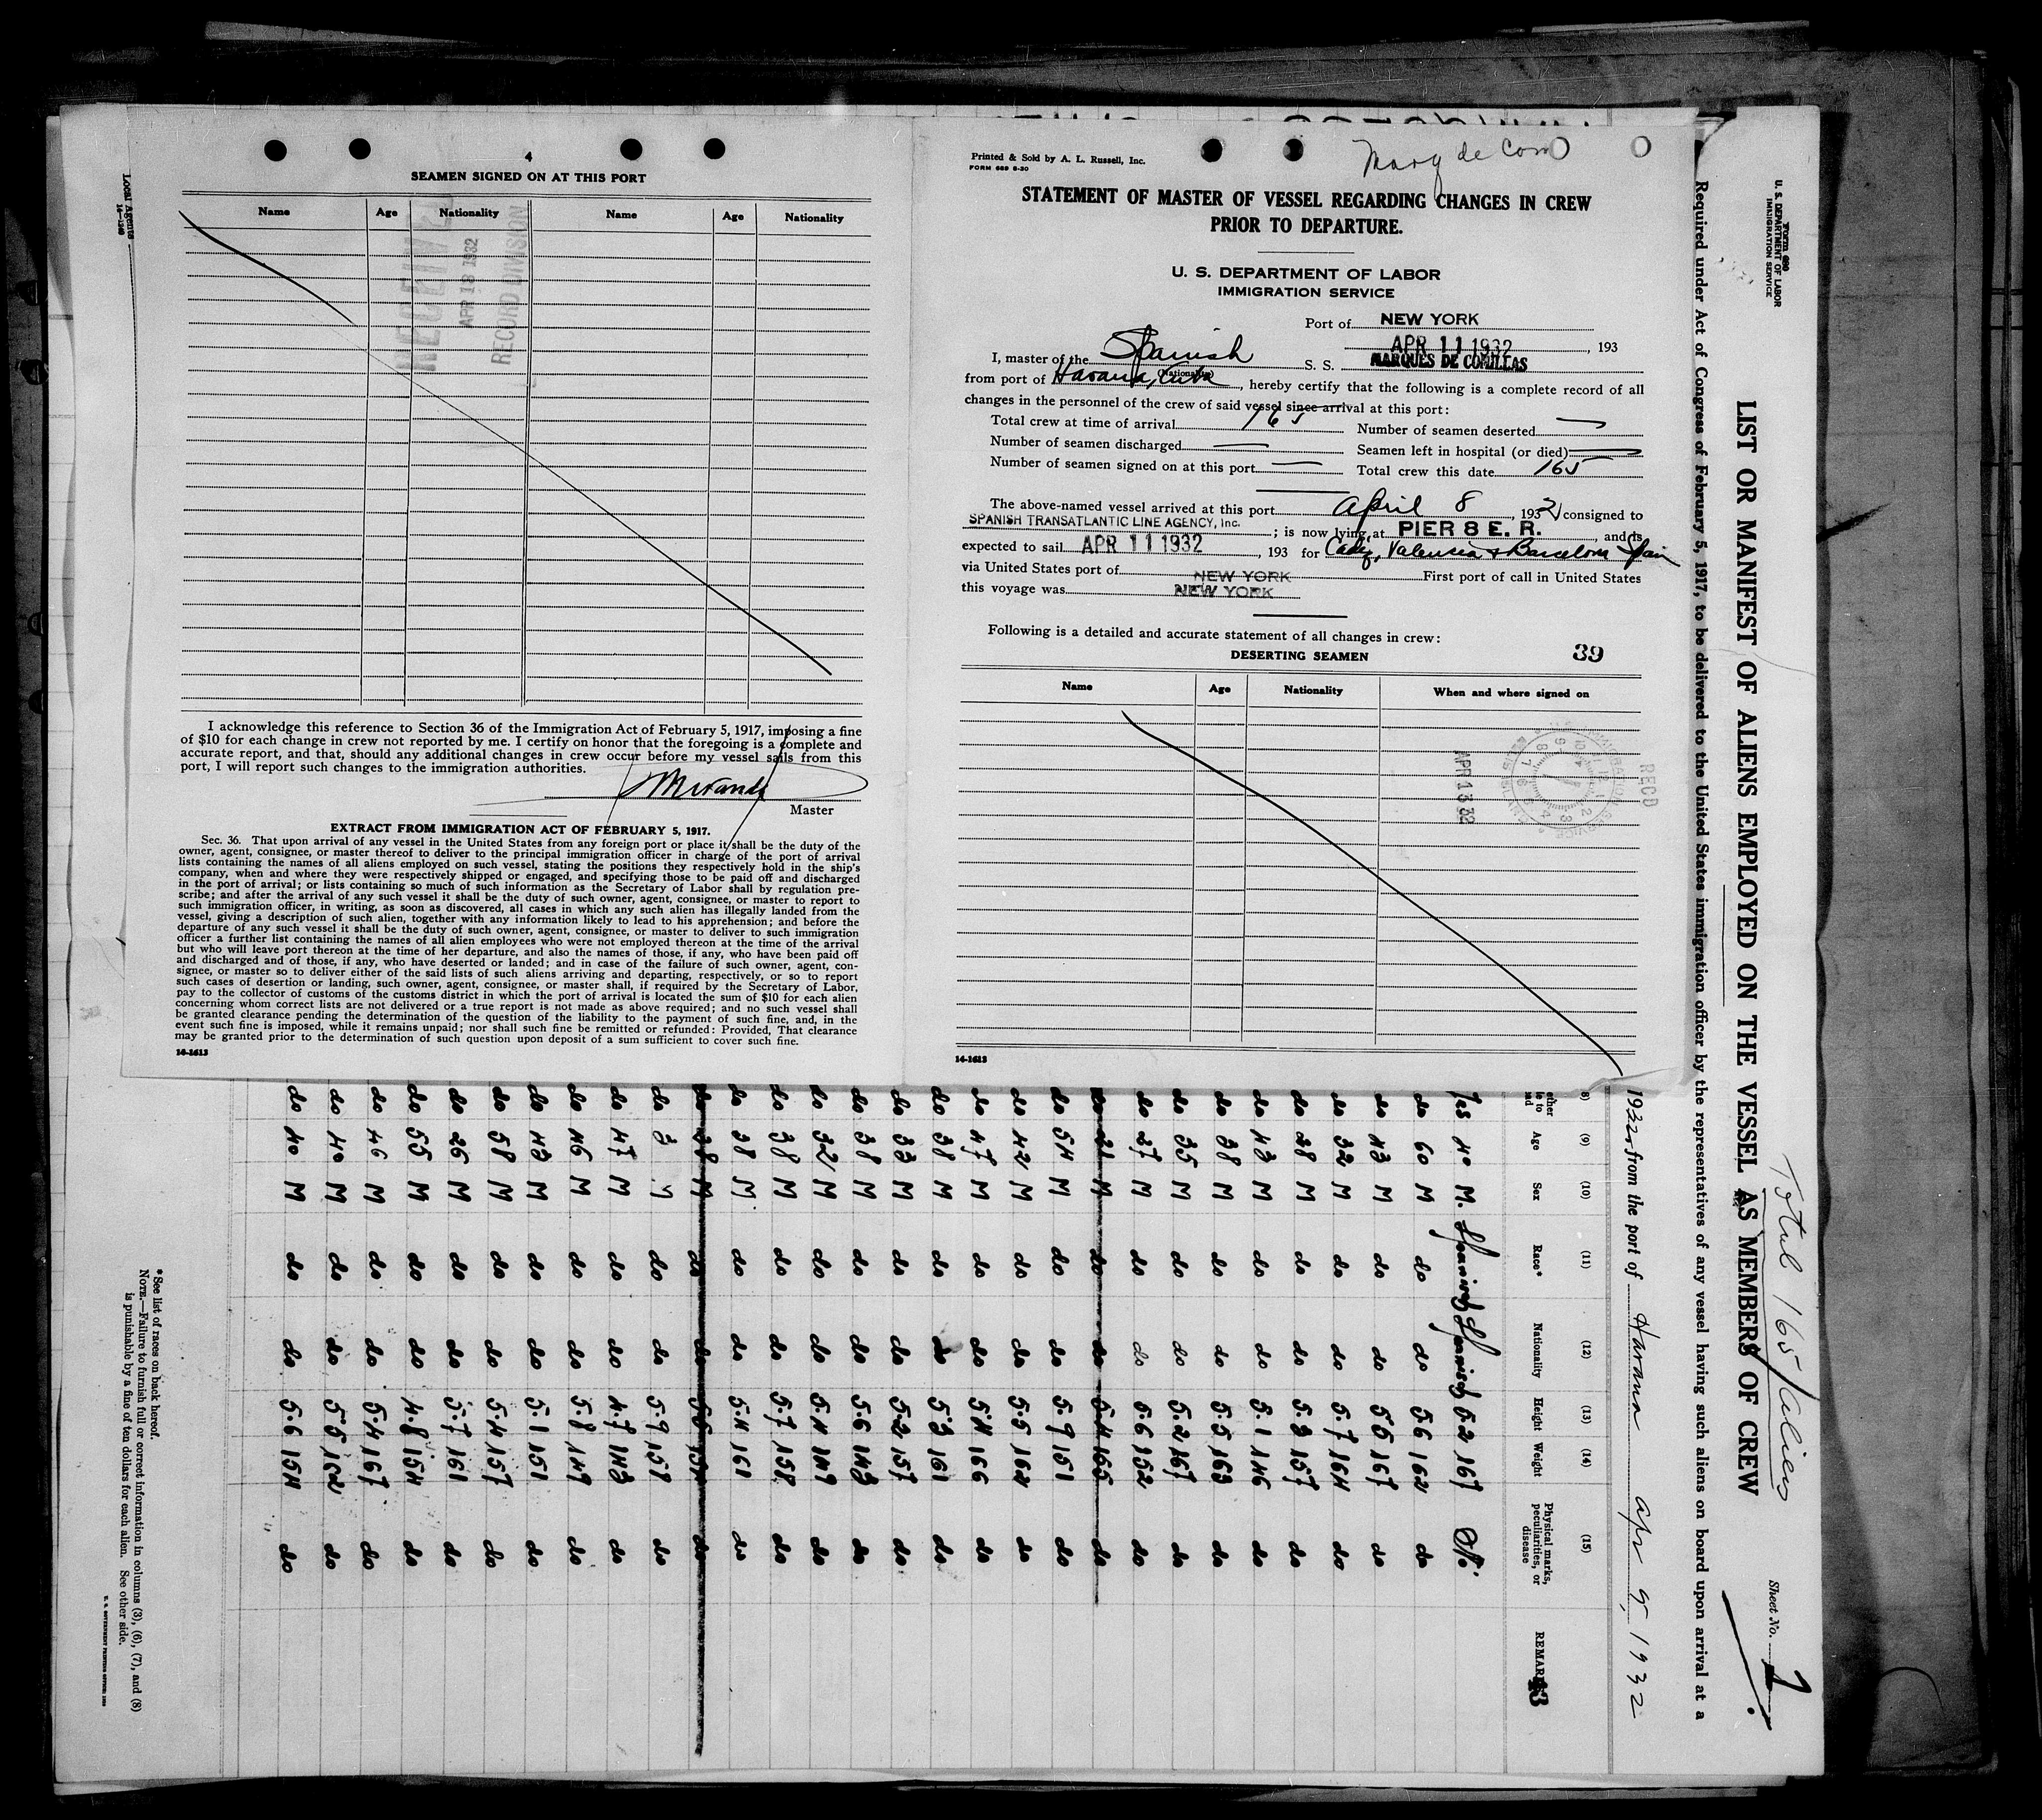 4
SEAMEN SIGNED ON AT THIS PORT
Name Age Nationality Name Age Nationality
RECORD DIVISION
APR 13 1932
I acknowledge this reference to Section 36 of the Immigration Act of February 5, 1917, imposing a fine
of $10 for each change in crew not reported by me. I certify on honor that the foregoing is a complete and
accurate report, and that, should any additional changes in crew occur before my vessel sails from this
port, I will report such changes to the immigration authorities.
Master
EXTRACT FROM IMMIGRATION ACT OF FEBRUARY 5, 1917.
Sec. 36. That upon arrival of any vessel in the United States from any foreign port or place it shall be the duty of the
owner, agent, consignee, or master thereof to deliver to the principal immigration officer in charge of the port of arrival
lists containing the names of all aliens employed on such vessel, stating the positions they respectively hold in the ship's
company, when and where they were respectively shipped or engaged, and specifying those to be paid off and discharged
in the port of arrival; or lists containing so much of such information as the Secretary of Labor shall by regulation pre-
scribe; and after the arrival of any such vessel it shall be the duty of such owner, agent, consignee, or master to report to
such immigration officer, in writing, as soon as discovered, all cases in which any such alien has illegally landed from the
vessel, giving a description of such alien, together with any information likely to lead to his apprehension; and before the
departure of any such vessel it shall be the duty of such owner, agent, consignee, or master to deliver to such immigration
officer a further list containing the names of all alien employees who were not employed thereon at the time of the arrival
but who will leave port thereon at the time of her departure, and also the names of those, if any, who have been paid off
and discharged and of those, if any, who have deserted or landed; and in case of the failure of such owner, agent, con-
signee, or master so to deliver either of the said lists of such aliens arriving and departing, respectively, or so to report
such cases of desertion or landing, such owner, agent, consignee, or master shall, if required by the Secretary of Labor,
pay to the collector of customs of the customs district in which the port of arrival is located the sum of $10 for each alien
concerning whom correct lists are not delivered or a true report is not made as above required; and no such vessel shall
be granted clearance pending the determination of the question of the liability to the payment of such fine, and, in the
event such fine is imposed, while it remains unpaid; nor shall such fine be remitted or refunded: Provided, That clearance
may be granted prior to the determination of such question upon deposit of a sum sufficient to cover such fine.
14-1613
Local Agents
14-1240
Printed & Sold by A. L. Russell, Inc.
FORM 689 6-30
Marq de Com
STATEMENT OF MASTER OF VESSEL REGARDING CHANGES IN CREW
PRIOR TO DEPARTURE.
U. S. DEPARTMENT OF LABOR
IMMIGRATION SERVICE
Port of NEW YORK
APR 11 1932, 193
I, master of the Spanish S. S. MARQUES DE COMILLAS
(Nationality)
from port of Havana, Cuba, hereby certify that the following is a complete record of all
changes in the personnel of the crew of said vessel since arrival at this port:
Total crew at time of arrival 165 Number of seamen deserted —
Number of seamen discharged — Seamen left in hospital (or died) —
Number of seamen signed on at this port — Total crew this date 165
The above-named vessel arrived at this port April 8, 1932 consigned to
SPANISH TRANSATLANTIC LINE AGENCY, Inc.; is now lying at PIER 8 E. R., and is
expected to sail APR 11 1932, 193 for Cadiz, Valencia & Barcelona Spain
via United States port of NEW YORK First port of call in United States
this voyage was NEW YORK
Following is a detailed and accurate statement of all changes in crew:
DESERTING SEAMEN 39
Name Age Nationality When and where signed on
APR 13 32
RECD
14-1613
Form 680
U. S. DEPARTMENT OF LABOR
IMMIGRATION SERVICE
Total 165 Aliens
Sheet No. 1
LIST OR MANIFEST OF ALIENS EMPLOYED ON THE VESSEL AS MEMBERS OF CREW
Required under Act of Congress of February 5, 1917, to be delivered to the United States immigration officer by the representatives of any vessel having such aliens on board upon arrival at a
1932, from the port of Havana apr 5, 1932
(9) (10) (11) (12) (13) (14) (15)
Age Sex Race* Nationality Height Weight Physical marks, peculiarities, or disease REMARKS
43
Yes 40 M. Spanish Spanish 5.2 167 No.
do 60 M do do 5.6 162 do
do 43 M do do 5.5 167 do
do 32 M do do 5.7 164 do
do 28 M do do 5.3 157 do
do 43 M do do 5.1 146 do
do 38 M do do 5.5 163 do
do 35 M do do 5.2 167 do
do 27 M do do 5.6 152 do
do 21 M do do 5.4 165 do
do 54 M do do 5.9 151 do
do 42 M do do 5.5 164 do
do 47 M do do 5.4 166 do
do 38 M do do 5.3 161 do
do 33 M do do 5.2 157 do
do 38 M do do 5.6 143 do
do 32 M do do 5.4 149 do
do 38 M do do 5.7 158 do
do 38 M do do 5.4 161 do
do 38 M do do 5.6 do
do 3 M do do 5.9 151 do
do 47 M do do 4.7 143 do
do 46 M do do 5.8 149 do
do 43 M do do 5.1 151 do
do 58 M do do 5.4 157 do
do 26 M do do 5.7 161 do
do 55 M do do 4.8 154 do
do 46 M do do 5.4 167 do
do 40 M do do 5.5 162 do
do 40 M do do 5.6 154 do
* See list of races on back hereof.
NOTE.—Failure to furnish full or correct information in columns (3), (6), (7), and (8)
is punishable by a fine of ten dollars for each alien. See other side.
U. S. GOVERNMENT PRINTING OFFICE